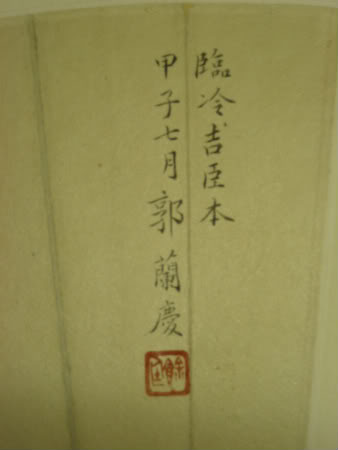 臨冷吉臣本
甲子七月郭蘭慶